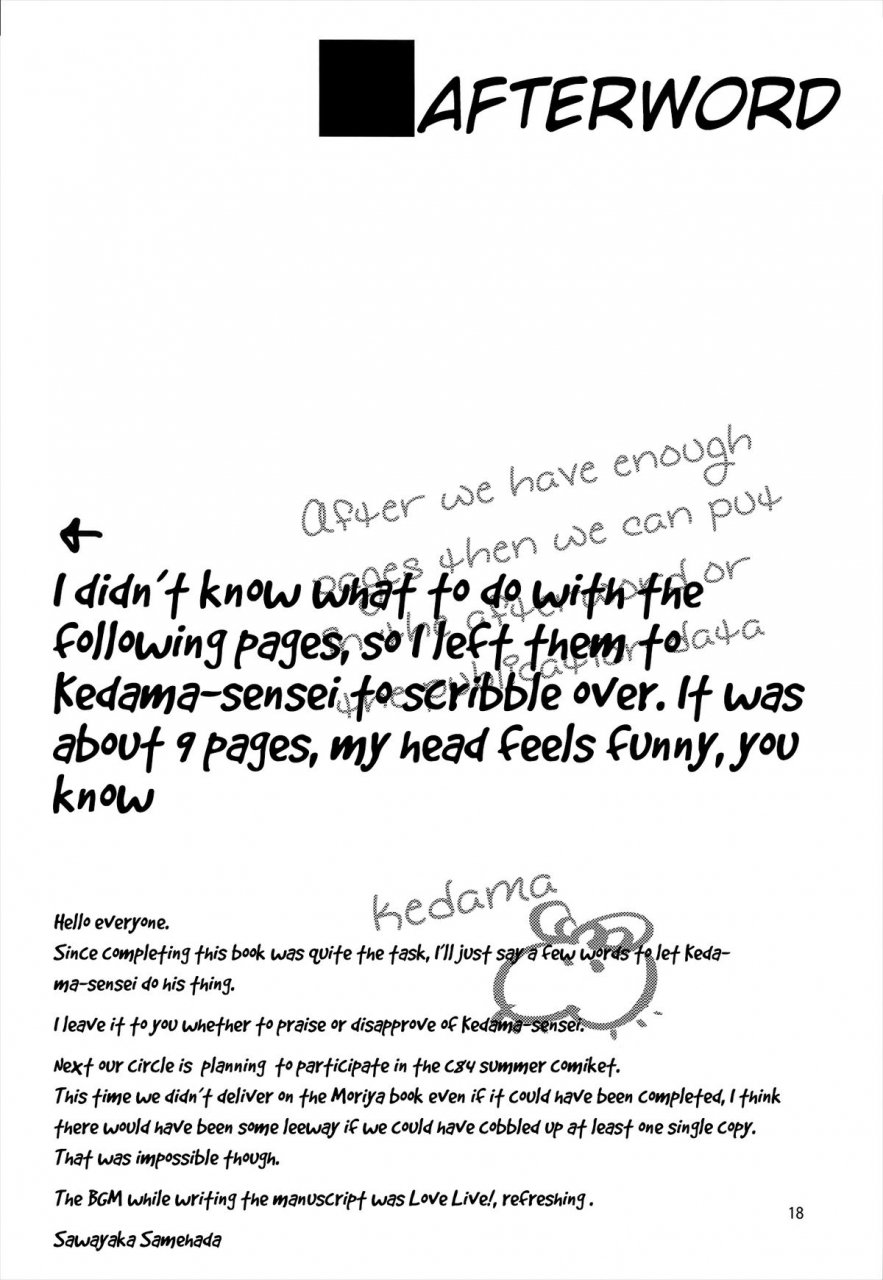 AFTERWORD
After we have enough
pages then we can put
in the afterword or
the publication data
I didn't know what to do with the
following pages, so I left them to
Kedama-sensei to scribble over. It was
about 9 pages, my head feels funny, you
know
kedama
Hello everyone.
Since completing this book was quite the task, I'll just say a few words to let Keda-
ma-sensei do his thing.
I leave it to you whether to praise or disapprove of Kedama-sensei.
Next our circle is planning to participate in the C84 summer comiket.
This time we didn't deliver on the Moriya book even if it could have been completed, I think
there would have been some leeway if we could have cobbled up at least one single copy.
That was impossible though.
The BGM while writing the manuscript was Love Live!, refreshing.
Sawayaka Samehada
18